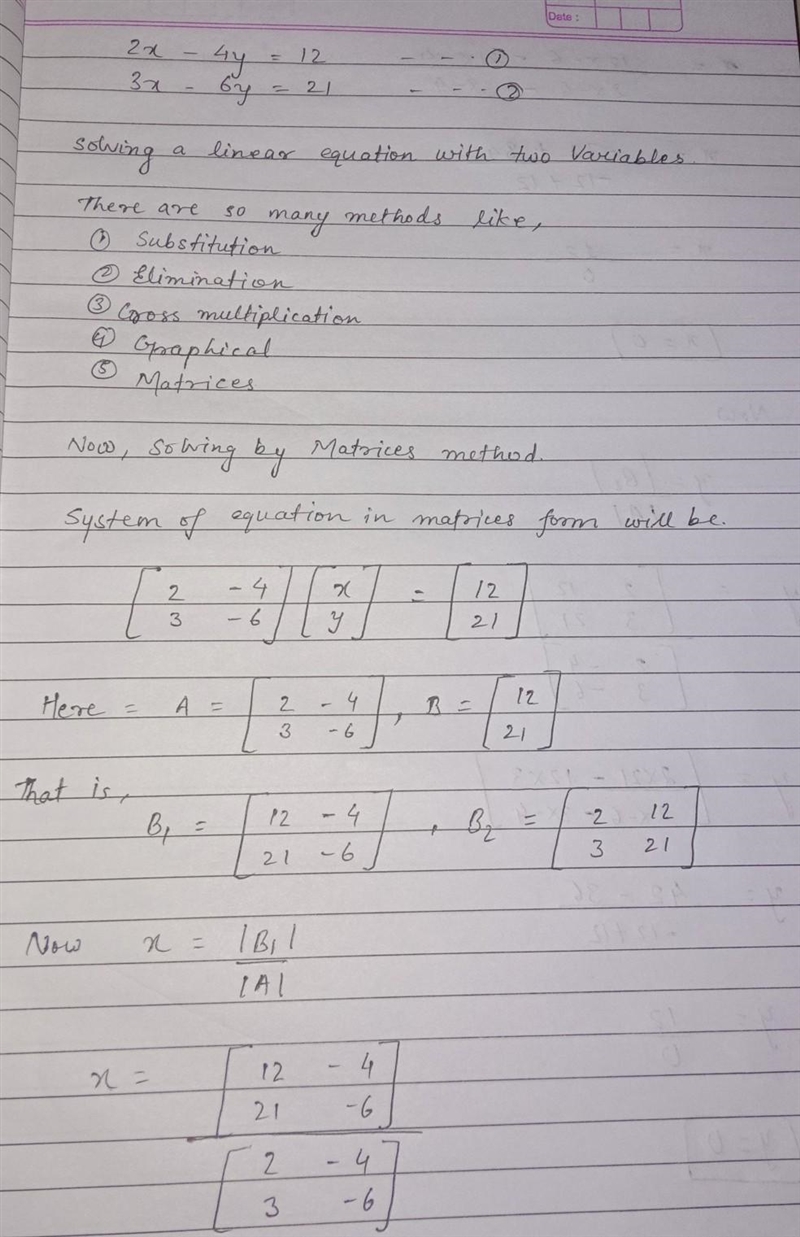 Date :
2x - 4y = 12 - - - ①
3x - 6y = 21 - - - ②
solving a linear equation with two Variables.
There are so many methods like,
① Substitution
② Elimination
③ Cross multiplication
④ Graphical
⑤ Matrices
Now, solving by Matrices method.
System of equation in matrices form will be.
[2 -4] [x] = [12]
[3 -6] [y] [21]
Here = A = [2 -4], B = [12]
[3 -6] [21]
That is,
B₁ = [12 -4], B₂ = [-2 12]
[21 -6] [3 21]
Now x = |B₁|
|A|
x = [12 -4]
[21 -6]
[2 -4]
[3 -6]